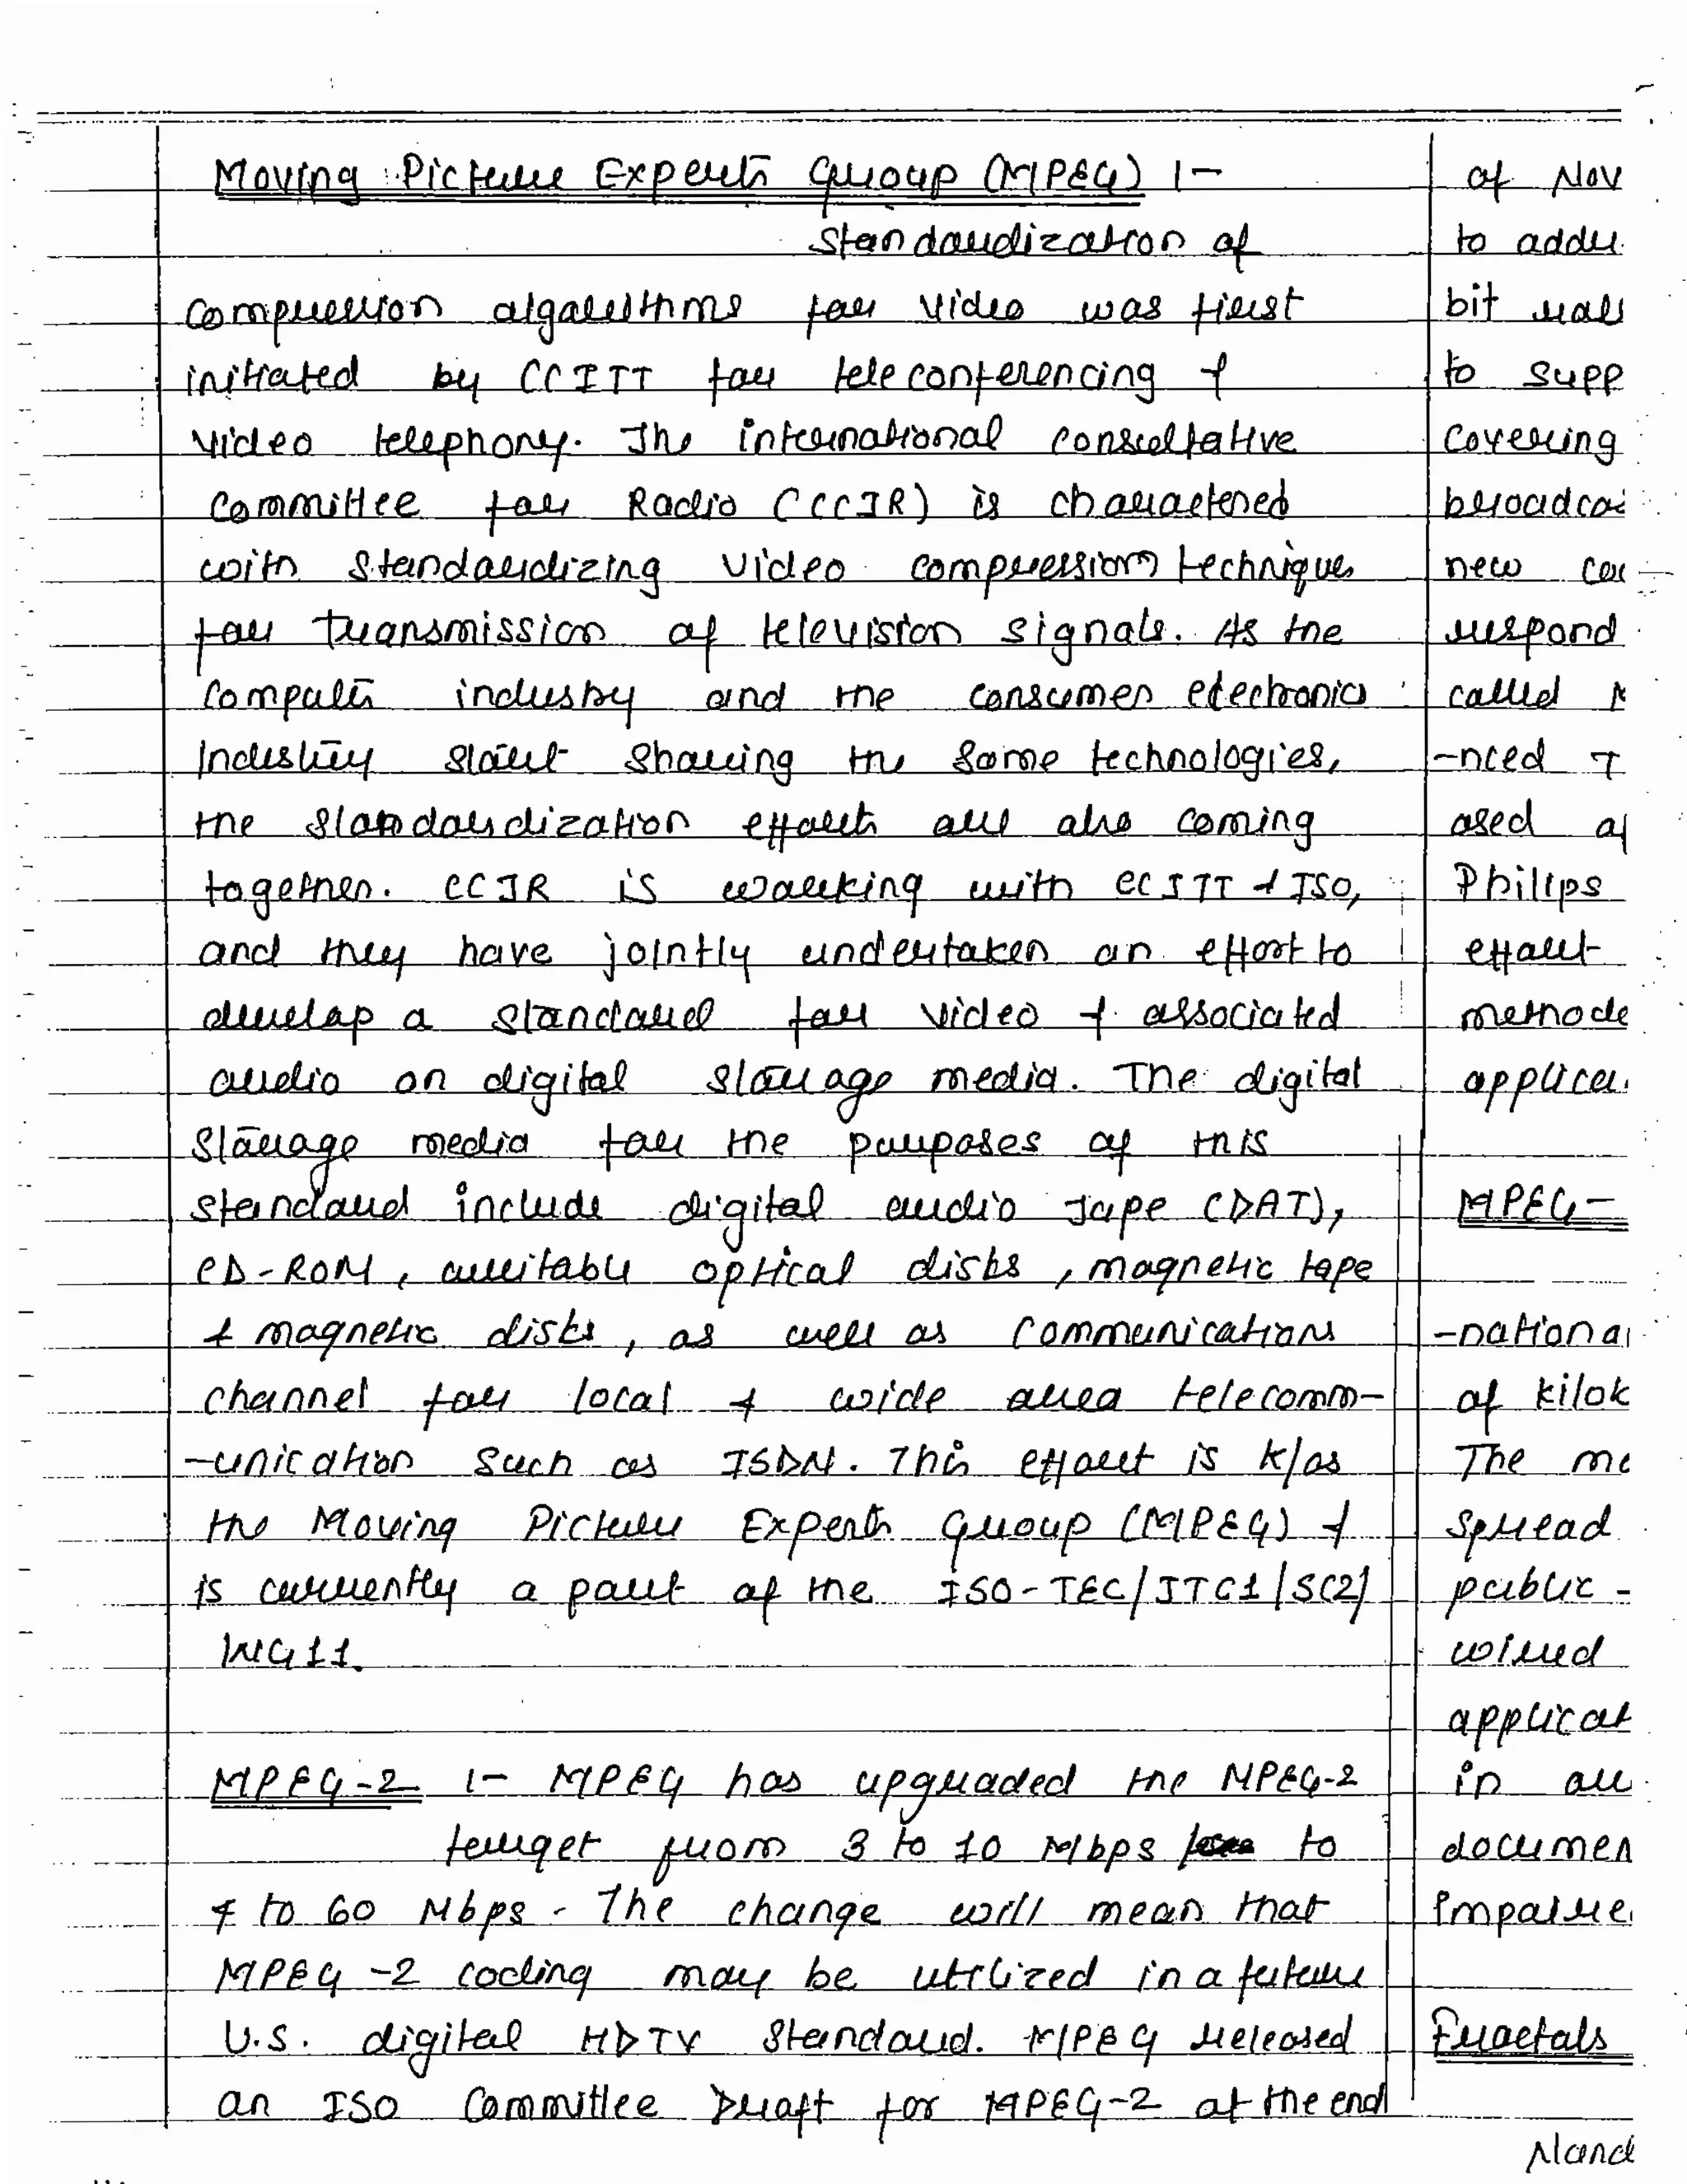 Moving Picture Experts Group (MPEG) :-
Standardization of
compression algorithms for video was first
initiated by CCITT for teleconferencing &
video telephony. The international consultative
committee for Radio (CCIR) is charactered
with standardizing video compression techniques
for transmission of television signals. As the
computer industry and the consumer electronics
Industry start sharing the same technologies,
the standardization efforts are also coming
together. CCIR is working with CCITT & ISO,
and they have jointly undertaken an effort to
develop a standard for video & associated
audio on digital storage media. The digital
storage media for the purposes of this
standard include digital audio Tape (DAT),
CD-ROM, writable optical disks, magnetic tape
& magnetic disks, as well as communications
channel for local & wide area telecomm-
-unication such as ISDN. This effort is k/as
the Moving Picture Experts Group (MPEG) &
is currently a part of the ISO-IEC/JTC1/SC2/
WG11.
MPEG-2 :- MPEG has upgraded the MPEG-2
target from 3 to 10 Mbps to
4 to 60 Mbps. The change will mean that
MPEG-2 coding may be utilized in a future
U.S. digital HDTV standard. MPEG released
an ISO Committee Draft for MPEG-2 at the end
of Nov
to addr
bit rat
to supp
covering
broadcas
new co
respond
called M
-nced T
ased of
Philips
effort
methode
applica
MPEG-
-national
of kilok
The mo
spread
public-
wired
applicat
in ar
documen
impaire
Fractals
Nand